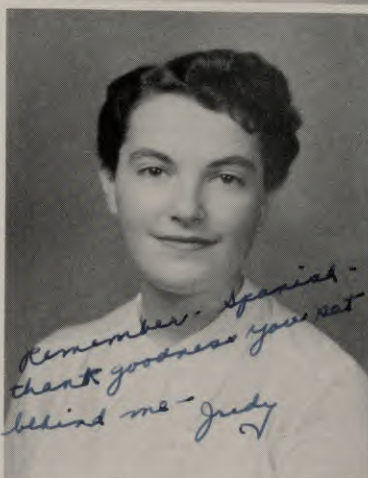 Remember - Spanish -
thank goodness you sat
behind me -
Judy